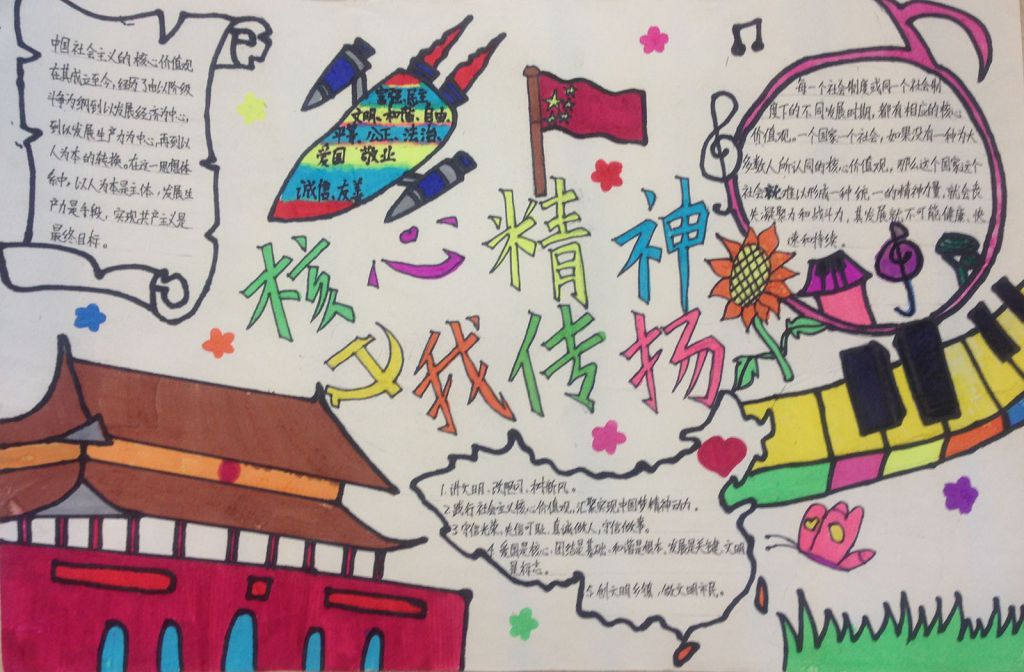 中国社会主义的核心价值观
在其成立至今,经历了由以阶级
斗争为纲到以发展经济为中心,
到以发展生产力为中心,再到以
人为本的转换。在这一思想体
系中,以人为本是主体,发展生
产力是手段,实现共产主义是
最终目标。
富强、民主
文明、和谐、自由、
平等、公正、法治、
爱国 敬业
诚信、友善
每一个社会制度或同一个社会制
度下的不同发展时期,都有相应的核心
价值观。一个国家一个社会,如果没有一种为大
多数人所认同的核心价值观,那么这个国家这个
社会就难以形成一种统一的精神力量,就会丧
失凝聚力和战斗力,其发展就不可能健康、快
速和持续。
核心精神
我传扬
1.讲文明、改陋习、树新风。
2.践行社会主义核心价值观,汇聚实现中国梦精神动力。
3.守信光荣,失信可耻,真诚做人,守信做事。
4.爱国是核心,团结是基础,和谐是根本,发展是关键,文明
是标志。
5.创文明乡镇,做文明市民。